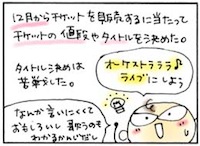 12月からチケットを販売するに当たって
チケットの値段やタイトルを決めた。
タイトル決めは
苦労した。
オーケストラララ♪
ライブにしよう
なんか言いにくくて
おもしろいし 歌うのも
わかるかんじだし